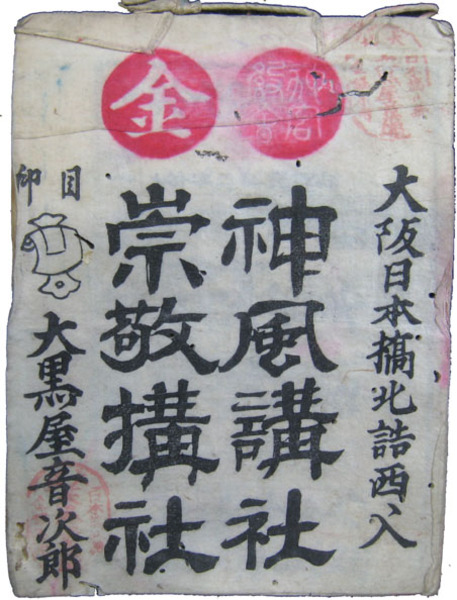 金
大阪日本橋北詰西入
神風講社
崇敬搆社
目印
大黒屋音次郎